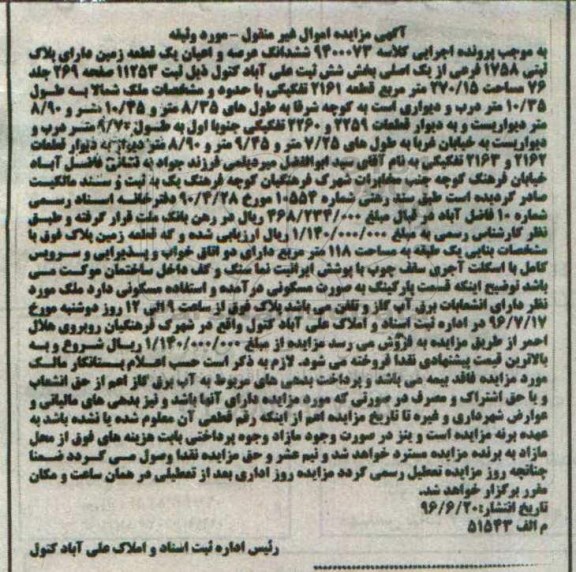 آگهی مزایده اموال غیر منقول - مورد وثیقه
به موجب پرونده اجرایی کلاسه ۹۴۰۰۰۷۳ ششدانگ عرصه و اعیان یک قطعه زمین دارای پلاک
ثبتی ۱۷۵۸ فرعی از یک اصلی بخش شش ثبت علی آباد کتول ذیل ثبت ۱۱۲۵۳ صفحه ۲۶۹ جلد
۷۶ مساحت ۲۷۰/۱۵ متر مربع قطعه ۲۱۶۱ تفکیکی با حدود و مشخصات ملک شمالا به طول
۱۰/۳۵ متر درب و دیواری است به کوچه شرقا به طول های ۸/۳۵ متر و ۱۰/۴۵ متر و ۸/۹۰
متر دیواریست و به دیوار قطعات ۲۲۵۹ و ۲۲۶۰ تفکیکی جنوبا اول به طول ۹/۷۰ متر درب و
دیواریست به خیابان غربا به طول های ۷/۲۵ متر و ۹/۴۵ متر و ۸/۹۰ متر دیوار به دیوار قطعات
۲۱۶۲ و ۲۱۶۳ تفکیکی به نام آقای سید ابوالفضل میردیلمی فرزند جواد به نشانی فاضل آباد
خیابان فرهنگ کوچه جنب مخابرات شهرک فرهنگیان کوچه فرهنگ یک به ثبت و سند مالکیت
صادر گردیده است طبق سند رهنی شماره ۱۰۵۵۴ مورخ ۹۰/۴/۲۸ دفترخانه اسناد رسمی
شماره ۱۰ فاضل آباد در قبال مبلغ ۴۶۸/۲۳۴/۰۰۰ ریال در رهن بانک ملت قرار گرفته و طبق
نظر کارشناس رسمی به مبلغ ۱/۱۴۰/۰۰۰/۰۰۰ ریال ارزیابی شده و که قطعه زمین پلاک فوق با
مشخصات بنایی یک طبقه به مساحت ۱۱۸ متر مربع دارای دو اتاق خواب و پذیرایی و سرویس
کامل با اسکلت آجری سقف چوب با پوشش ایرانیت نما سنگ و کف داخل ساختمان موکت می
باشد توضیح اینکه قسمت پارکینگ به صورت مسکونی درآمده و استفاده مسکونی دارد ملک مورد
نظر دارای انشعابات برق آب گاز و تلفن می باشد پلاک فوق از ساعت ۹ الی ۱۲ روز دوشنبه مورخ
۹۶/۷/۱۷ در اداره ثبت اسناد و املاک علی آباد کتول واقع در شهرک فرهنگیان روبروی هلال
احمر از طریق مزایده به فروش می رسد مزایده از مبلغ ۱/۱۴۰/۰۰۰/۰۰۰ ریال شروع و به
بالاترین قیمت پیشنهادی نقدا فروخته می شود. لازم به ذکر است حسب اعلام بستانکار مالک
مورد مزایده فاقد بیمه می باشد و پرداخت بدهی های مربوط به آب برق گاز اعم از حق انشعاب
و یا حق اشتراک و مصرف در صورتی که مورد مزایده دارای آنها باشد و نیز بدهی های مالیاتی و
عوارض شهرداری و غیره تا تاریخ مزایده اعم از اینکه رقم قطعی آن معلوم شده یا نشده باشد به
عهده برنه مزایده است و ینز در صورت وجود مازاد وجوه پرداختی بابت هزینه های فوق از محل
مازاد به برنده مزایده مسترد خواهد شد و نیم عشر و حق مزایده نقدا وصول می گردد ضمنا
چنانچه روز مزایده تعطیل رسمی گردد مزایده روز اداری بعد از تعطیلی در همان ساعت و مکان
مقرر برگزار خواهد شد.
تاریخ انتشار: ۹۶/۶/۲۰
م الف ۵۱۵۴۳
رئیس اداره ثبت اسناد و املاک علی آباد کتول